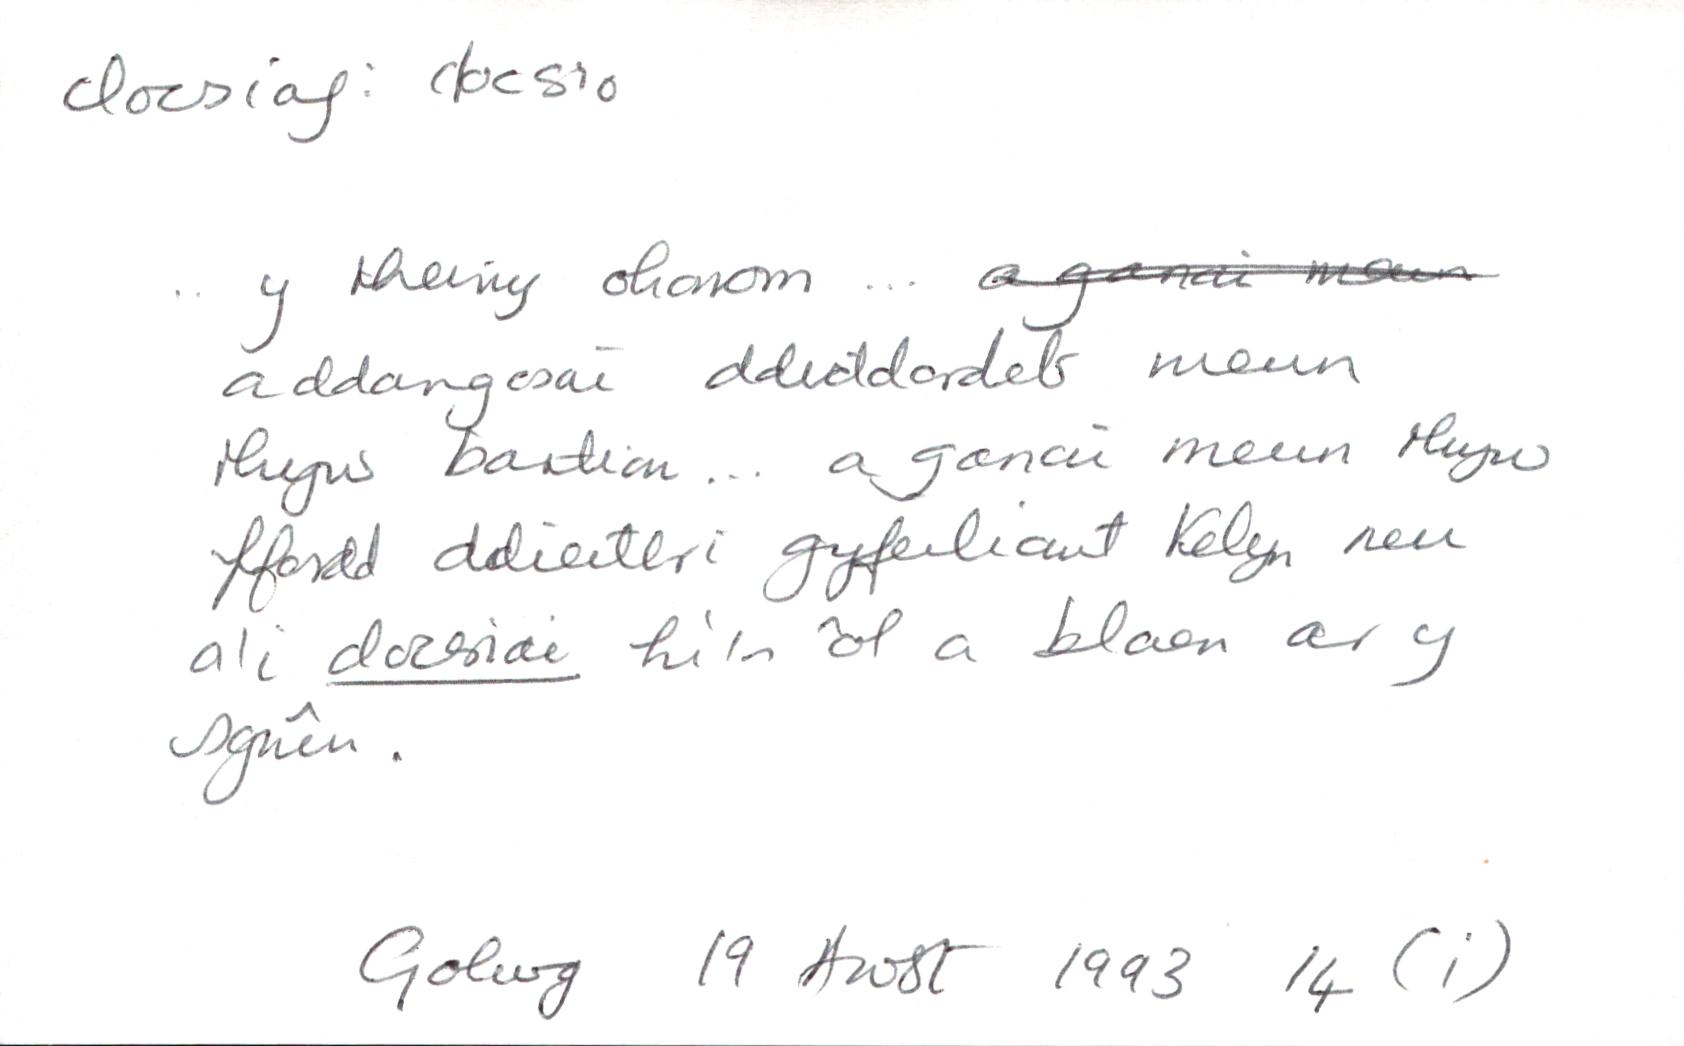 clocsiaf: clocsio
.. y rheiny ohonom ... ~~a ganai mewn~~
a ddangosai ddiddordeb mewn
rhyw bartïon ... a ganai mewn rhyw
ffordd ddieithri gyfeiliant Kelyn neu
a'i clocsiai hi'n ôl a blaen ar y
sgrîn.
Golwg 19 Awst 1993 14 (i)